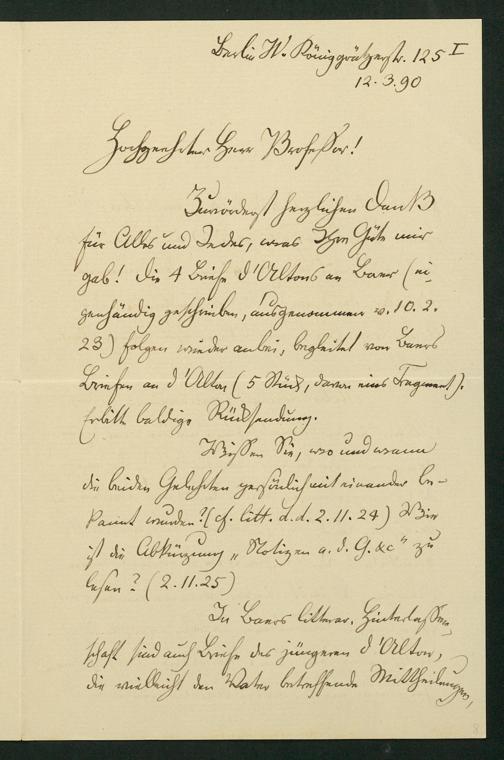 Berlin W. Königgrätzerstr. 125 I
12.3.90
Hochgeehrter Herr Professor!
Zuvörderst herzlichen Dank
für Alles und Jedes, was Ihre Güte mir
gab! Die 4 Briefe d'Altons an Baer (ei-
genhändig geschrieben, ausgenommen v. 10.2.
23) folgen wieder anbei, begleitet von Baers
Briefen an d'Alton (5 Stück, davon eins Fragment).
Erbitte baldige Rücksendung.
Wissen Sie, wo und wann
die beiden Gelehrten persönlich mit einander be-
kannt wurden? (cf. litt. d.d. 2.11.24) Wie
ist die Abkürzung „Notizen a. d. G. &c" zu
lesen? (2.11.25)
In Baers litterar. Hinterlassen-
schaft sind auch Briefe des jüngeren d'Alton,
die vielleicht den Vater betreffende Mittheilungen,